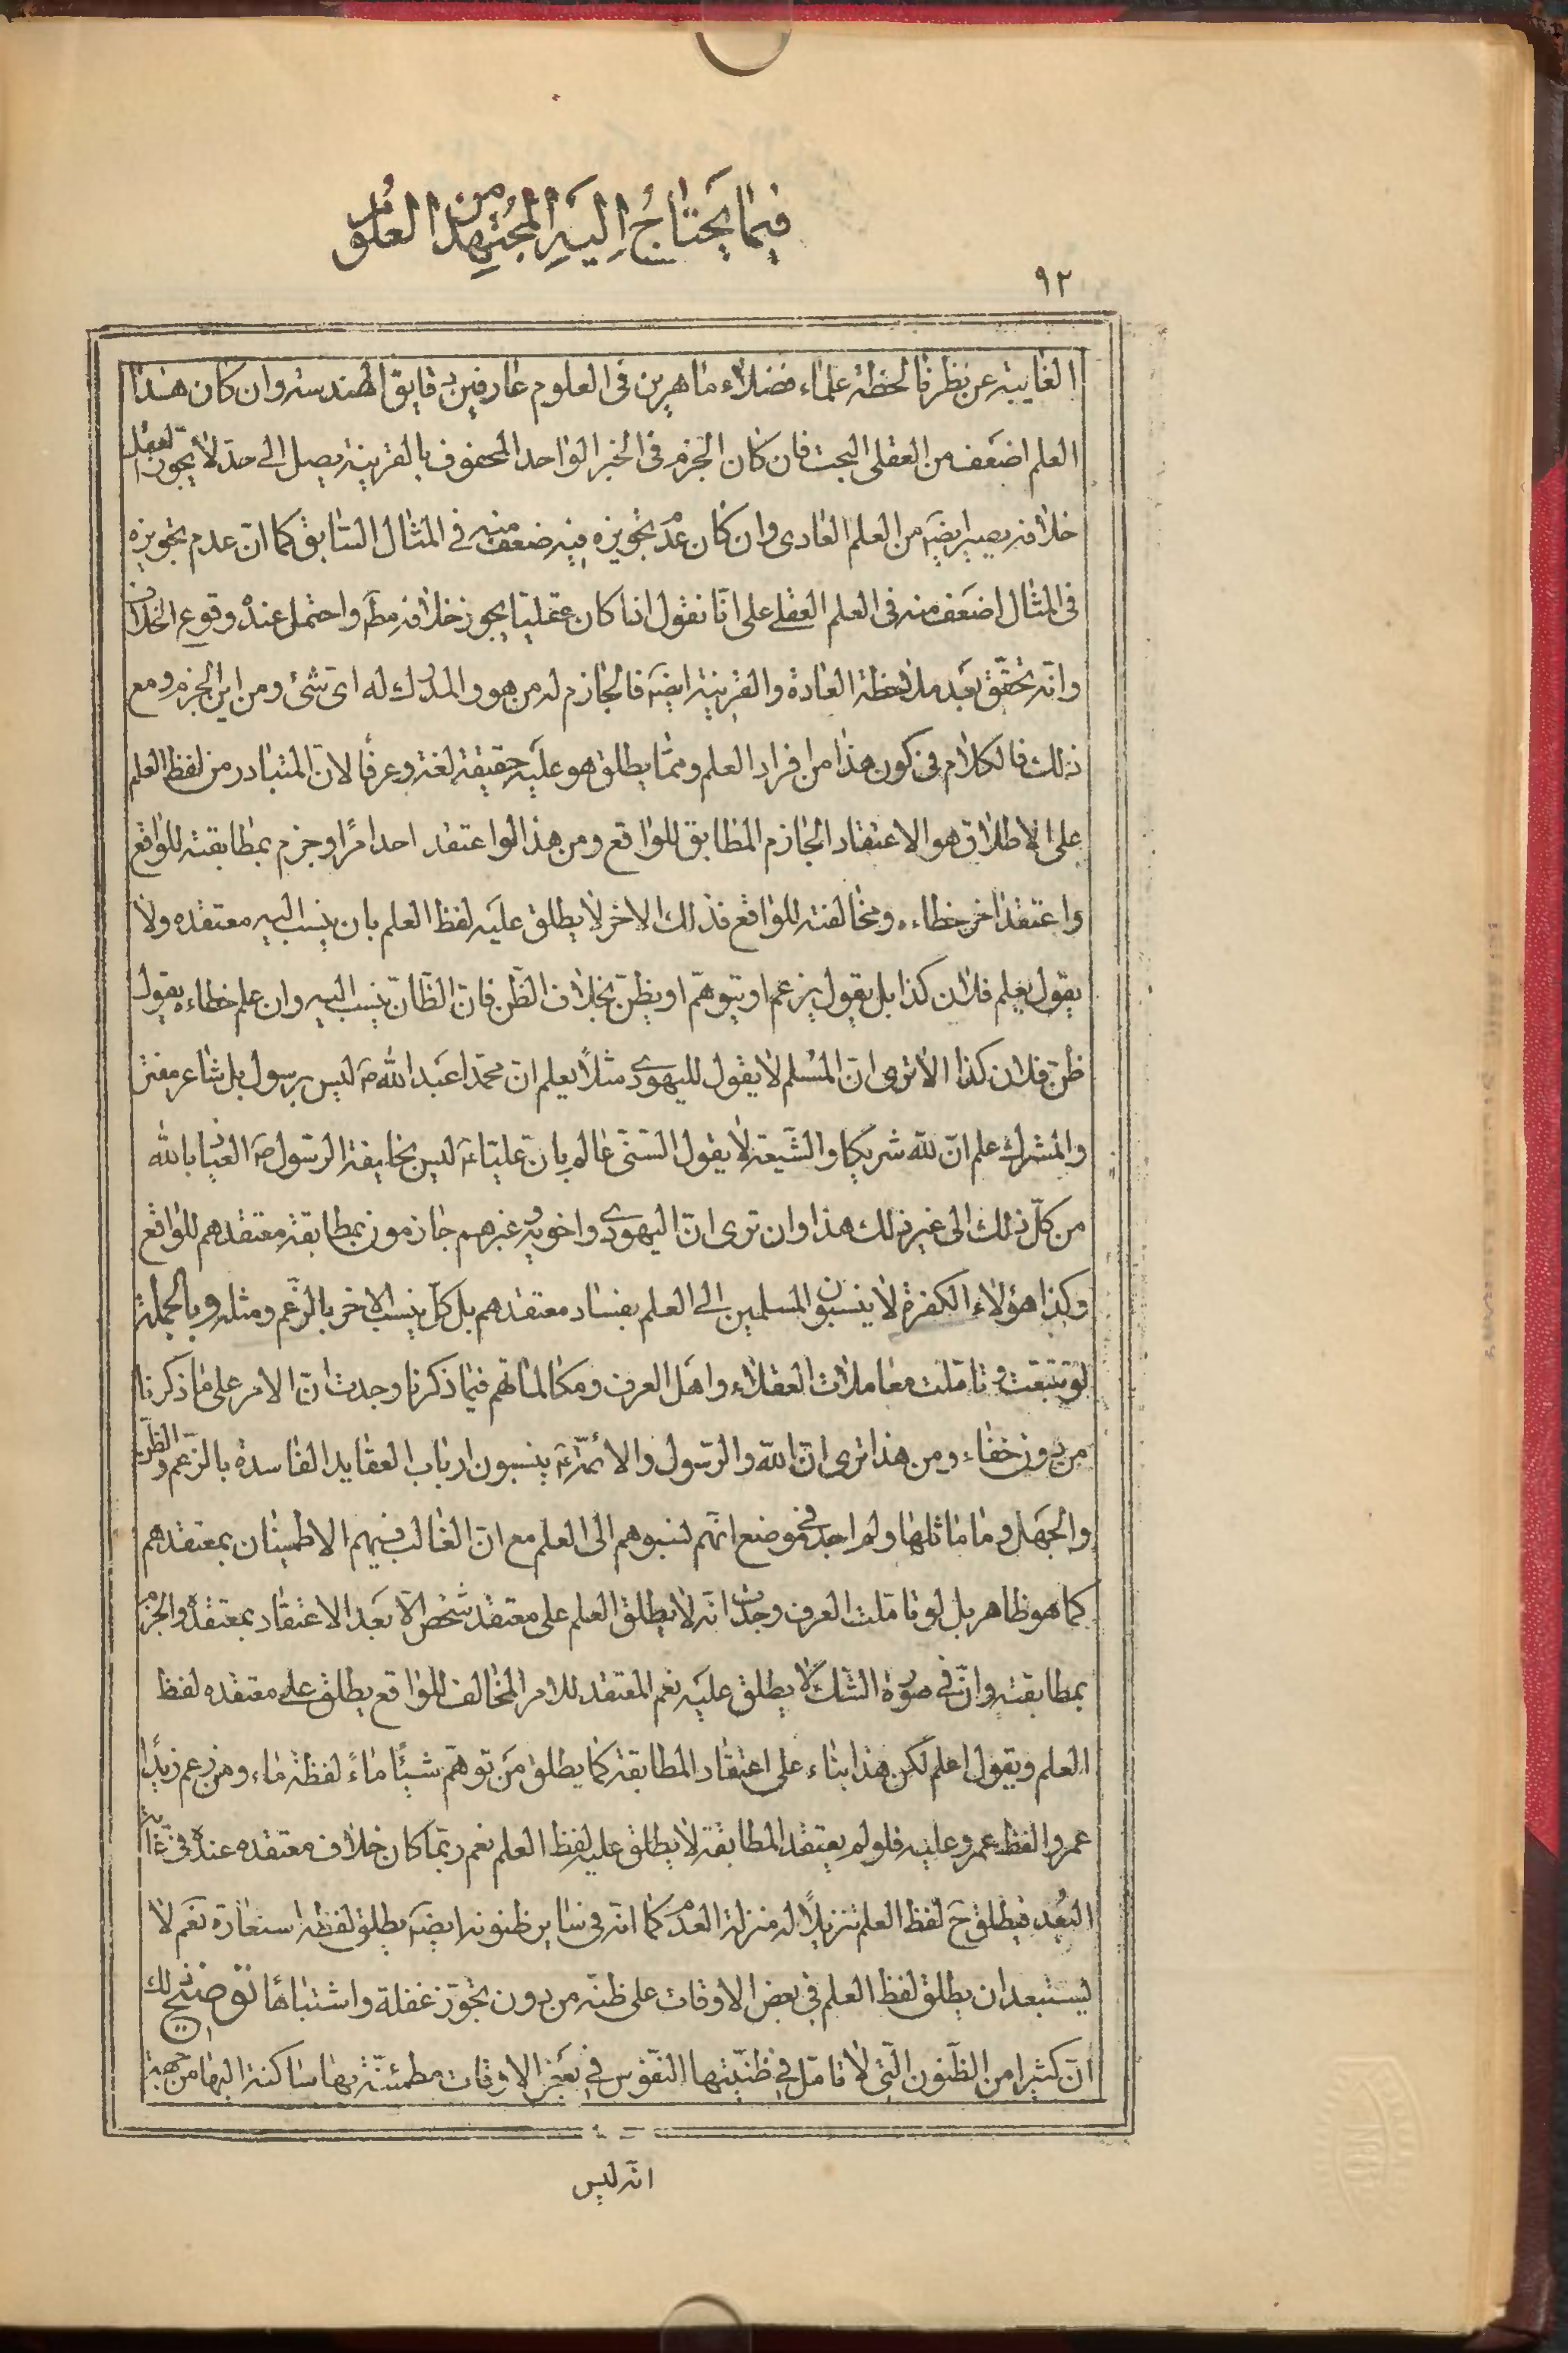 فيما يحتاج اليه المجتهد من العلوم
٩٢
الغايبة عن نظرنا لحظة علماء فضلاء ماهرين فى العلوم عارفين بدقايق الهندسة وان كان هذا
العلم اضعف من العقلى البحت فان كان الجزم فى الخبر الواحد المحفوف بالقرينة يصل الى حد لا يجوز العقل
خلافه يصير ايضه من العلم العادى وان كان عدم تجويزه فيه ضعف منه فى المثال السابق كما ان عدم تجويزه
فى المثال اضعف منه فى العلم العقلى على انا نقول اذا كان عقليا يجوز خلافه مطه واحتمل عنده وقوع الخلاف
وانه تحقق بعد ملاحظة العادة والقرينة ايضه فالجازم له من هو والمدرك له اى شئ ومن اين الجزم ومع
ذلك فالكلام فى كون هذا من افراد العلم ومما يطلق هو عليه حقيقة لغة وعرفا لان المتبادر من لفظ العلم
على الاطلاق هو الاعتقاد الجازم المطابق للواقع ومن هذا لو اعتقد احد امرًا وجزم بمطابقته للواقع
واعتقد اخر خطاءه ومخالفته للواقع فذلك الاخر لا يطلق عليه لفظ العلم بان ينسب اليه معتقده ولا
يقول يعلم فلان كذا بل يقول يزعم او يتوهم او يظن بخلاف الظن فان الظان ينسب اليه وان علم خطاءه يقول
ظن فلان كذا الا ترى ان المسلم لا يقول لليهودى مثلاً يعلم ان محمد اعبد الله صه ليس برسول بل شاعر مفتر
والمشرك علم ان لله شريكا والشيعة لا يقول السنى عالم بان عليا ع ليس بخليفة الرسول صه العياذ بالله
من كل ذلك الى غير ذلك هذا وان ترى ان اليهودى واخويه وغيرهم جازمون بمطابقة معتقدهم للواقع
وكذا هؤلاء الكفرة لا ينسبون المسلمين الى العلم بفساد معتقدهم بل كل ينسب الاخر بالزعم ومثله وبالجملة
لو تتبعت وتاملت معاملات العقلاء واهل العرف ومكالماتهم فيما ذكرنا وجدت ان الامر على ما ذكرنا
من دون خفاء ومن هذا ترى ان الله والرسول والائمة ع ينسبون ارباب العقايد الفاسدة بالزعم والظن
والجهل وما ماثلها ولم اجد فى موضع انهم نسبوهم الى العلم مع ان الغالب فيهم الاطمينان بمعتقدهم
كما هو ظاهر بل لو تاملت العرف وجدت انه لا يطلق العلم على معتقد شخص الا بعد الاعتقاد بمعتقده والجزم
بمطابقته وان فى صورة الشك لا يطلق عليه نعم المعتقد للامر المخالف للواقع يطلق على معتقده لفظ
العلم ويقول اعلم لكن هذا بناء على اعتقاد المطابقة كما يطلق من توهم شيئًا ماءً لفظة ماء ومن زعم زيدًا
عمروا لفظ عمرو عليه فلو لم يعتقد المطابقة لا يطلق عليه لفظ العلم نعم ربما كان خلاف معتقده عنده فى غاية
البُعد فيطلق ح لفظ العلم تنزيلاً له منزلة العدم كما انه فى ساير ظنونه ايضه يطلق لفظه استعارة نعم لا
يستبعد ان يطلق لفظ العلم فى بعض الاوقات على ظنه من دون تجوز غفلة واشتباهًا توضيح ذلك
ان كثيرا من الظنون التى لا تامل فى ظنيتها النفوس فى بعض الاوقات مطمئنة بها ساكنة اليها من جهة
انه ليس